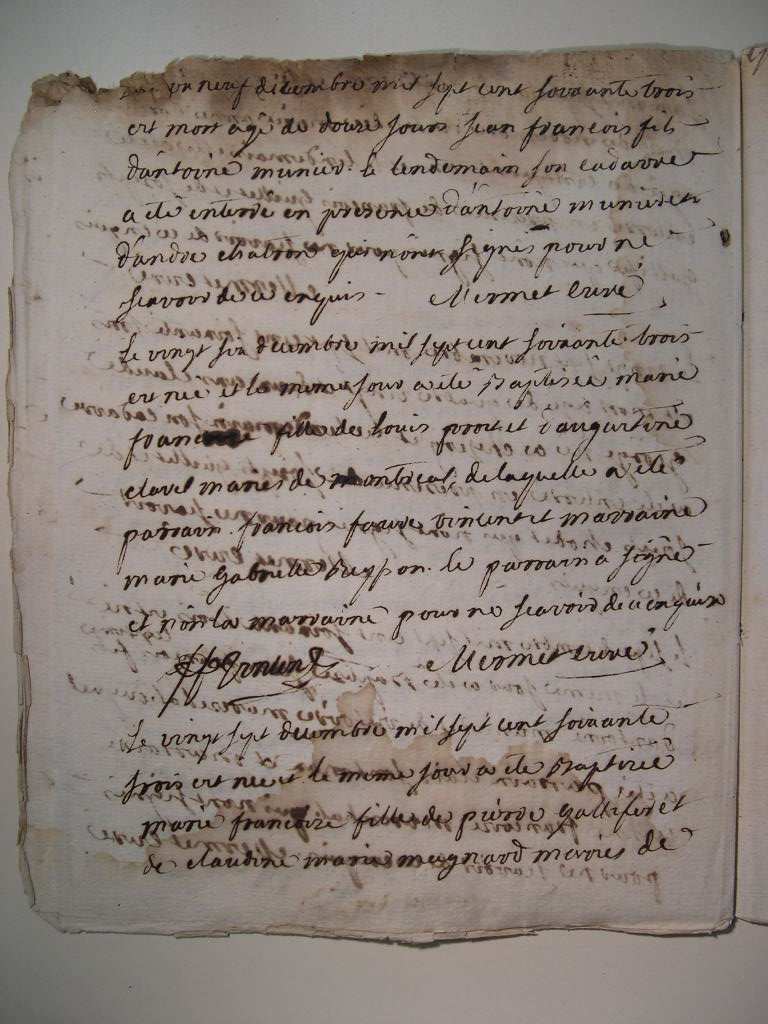 neuf decembre mil sept cent soixante trois
est mort agé de douze jours jean francois fils
d'antoine munier le lendemain son cadavre
a eté enterré en presence d'antoine munier et
d'andre chalron qui n'ont signés pour ne
scavoir de ce enquis - Mermet curé
Le vingt six decembre mil sept cent soixante trois
est née et le meme jour a eté Baptisée marie
fille de louis prort et d'augustine
clavel mariés de montreal, de laquelle a eté
parrain francois favre vincent et marraine
marie Gabrielle Reppon. le parrain a signé
et non la marraine pour ne scavoir de ce enquise
Mermet curé
Le vingt sept decembre mil sept cent soixante
trois est née et le meme jour a eté Baptisée
marie francoise fille de pierre Gallifet et
de claudine marie meynard mariés de